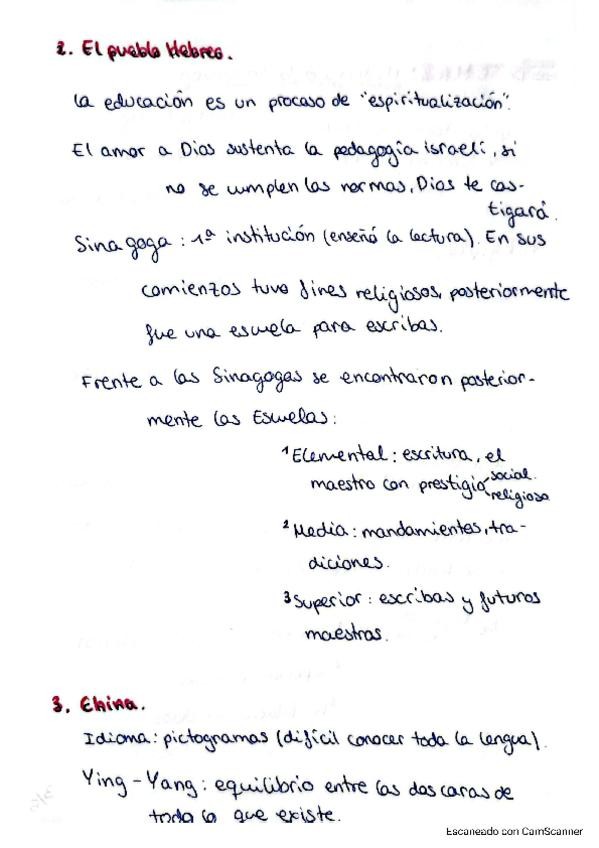 2. El pueblo Hebreo.
La educación es un proceso de "espiritualización".
El amor a Dios sustenta la pedagogía israelí, si
no se cumplen las normas, Dios te cas-
tigará.
Sinagoga: 1ª institución (enseñó la lectura). En sus
comienzos tuvo fines religiosos, posteriormente
fue una escuela para escribas.
Frente a las Sinagogas se encontraron posterior-
mente las Escuelas:
1 Elemental: escritura, el
maestro con prestigio social.
religioso
2 Media: mandamientos, tra-
diciones.
3 Superior: escribas y futuros
maestros.
3. China.
Idioma: pictogramas (difícil conocer toda la lengua).
Ying-Yang: equilibrio entre las dos caras de
todo lo que existe.
Escaneado con CamScanner